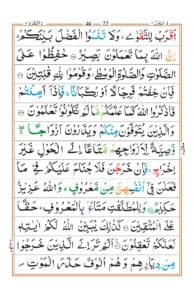 اَقْرَبُ لِلتَّقْوٰى ؕ وَلَا تَنْسَوُا الْفَضْلَ بَيْنَكُمْ ؕ
اِنَّ اللّٰهَ بِمَا تَعْمَلُوْنَ بَصِيْرٌ حٰفِظُوْا عَلَى
الصَّلَوٰتِ وَالصَّلٰوةِ الْوُسْطٰى وَقُوْمُوْا لِلّٰهِ قٰنِتِيْنَ
فَاِنْ خِفْتُمْ فَرِجَالًا اَوْ رُكْبَانًا فَاِذَاۤ اَمِنْتُمْ
فَاذْكُرُوا اللّٰهَ كَمَا عَلَّمَكُمْ مَّا لَمْ تَكُوْنُوْا تَعْلَمُوْنَ
وَالَّذِيْنَ يُتَوَفَّوْنَ مِنْكُمْ وَيَذَرُوْنَ اَزْوَاجًا
وَّصِيَّةً لِّاَزْوَاجِهِمْ مَّتَاعًا اِلَى الْحَوْلِ غَيْرَ
اِخْرَاجٍ فَاِنْ خَرَجْنَ فَلَا جُنَاحَ عَلَيْكُمْ فِيْ مَا
فَعَلْنَ فِيْۤ اَنْفُسِهِنَّ مِنْ مَّعْرُوْفٍ وَاللّٰهُ عَزِيْزٌ
حَكِيْمٌ وَلِلْمُطَلَّقٰتِ مَتَاعٌ بِالْمَعْرُوْفِ حَقًّا
عَلَى الْمُتَّقِيْنَ كَذٰلِكَ يُبَيِّنُ اللّٰهُ لَكُمْ اٰيٰتِهٖ
لَعَلَّكُمْ تَعْقِلُوْنَ اَلَمْ تَرَ اِلَى الَّذِيْنَ خَرَجُوْا
مِنْ دِيَارِهِمْ وَهُمْ اُلُوْفٌ حَذَرَ الْمَوْتِ